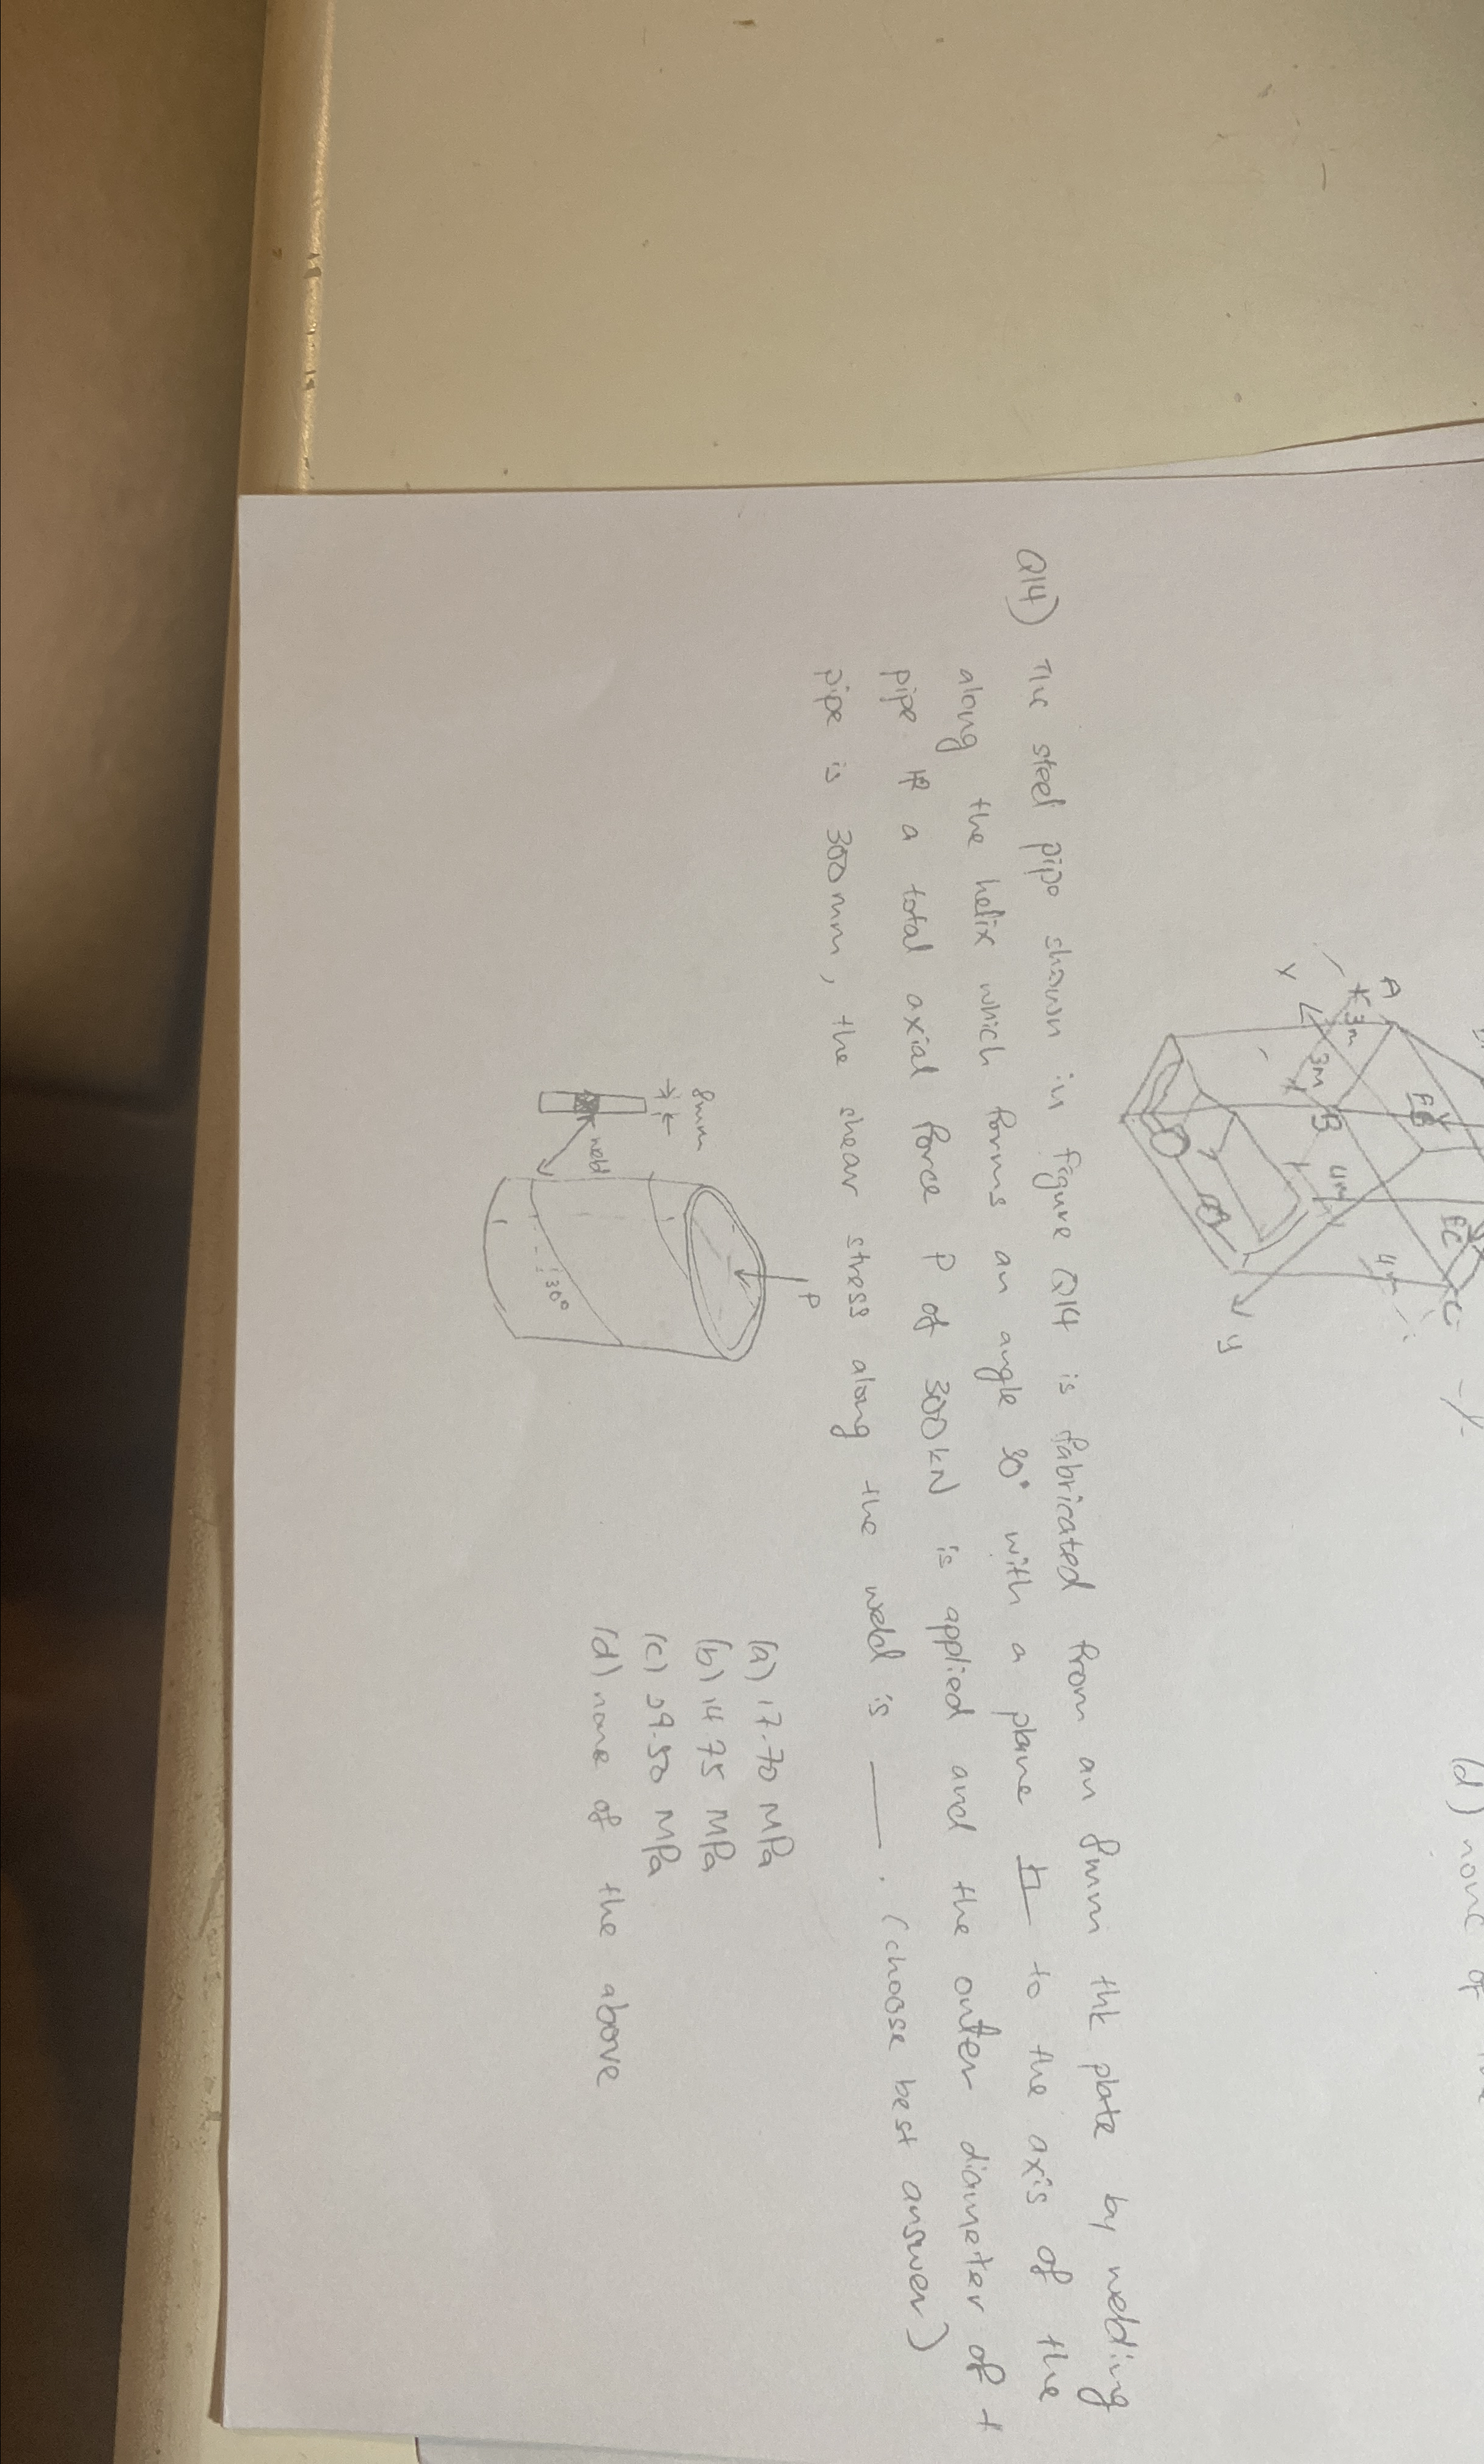 (d) none of
A
3m
3m
B
4m
4m
C
x
y
Q14) The steel pipe shown in figure Q14 is fabricated from an 8mm thk plate by welding
along the helix which forms an angle 30° with a plane to the axis of the
pipe If a total axial force P of 300kN is applied and the outer diameter of t
pipe is 300mm, the shear stress along the weld is ___. (choose best answer)
P
8mm
weld
30°
(a) 17.70 MPa
(b) 14.75 MPa
(c) 59.50 MPa
(d) none of the above